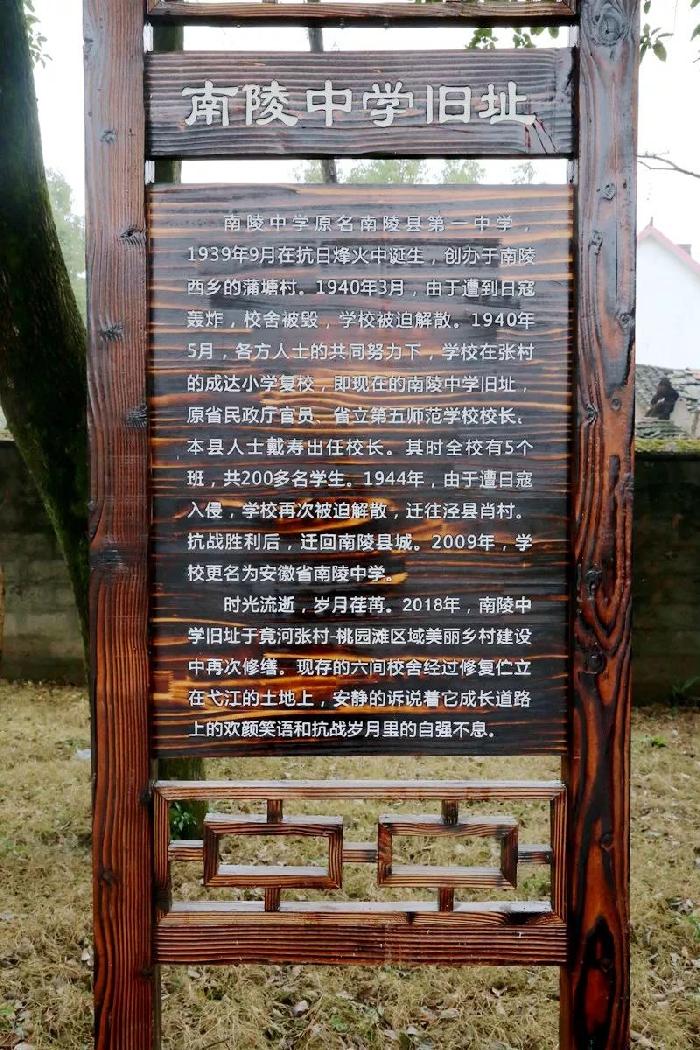 南陵中学旧址
南陵中学原名南陵县第一中学，
1939年9月在抗日烽火中诞生，创办于南陵
西乡的蒲塘村。1940年3月，由于遭到日冠
轰炸，校舍被毁，学校被迫解散。1940年
5月，各方人士的共同努力下，学校在张村
的成达小学复校，即现在的南陵中学旧址，
原省民政厅官员、省立第五师范学校校长、
本县人士戴寿出任校长。其时全校有5个
班，共200多名学生。1944年，由于遭日寇
入侵，学校再次被迫解散，迁往泾县肖村。
抗战胜利后，迁回南陵县城。2009年，学
校更名为安徽省南陵中学。
时光流逝，岁月荏苒。2018年，南陵中
学旧址于奚河张村-桃园滩区域美丽乡村建设
中再次修缮。现存的六间校舍经过修复伫立
在弋江的土地上，安静的诉说着它成长道路
上的欢颜笑语和抗战岁月里的自强不息。